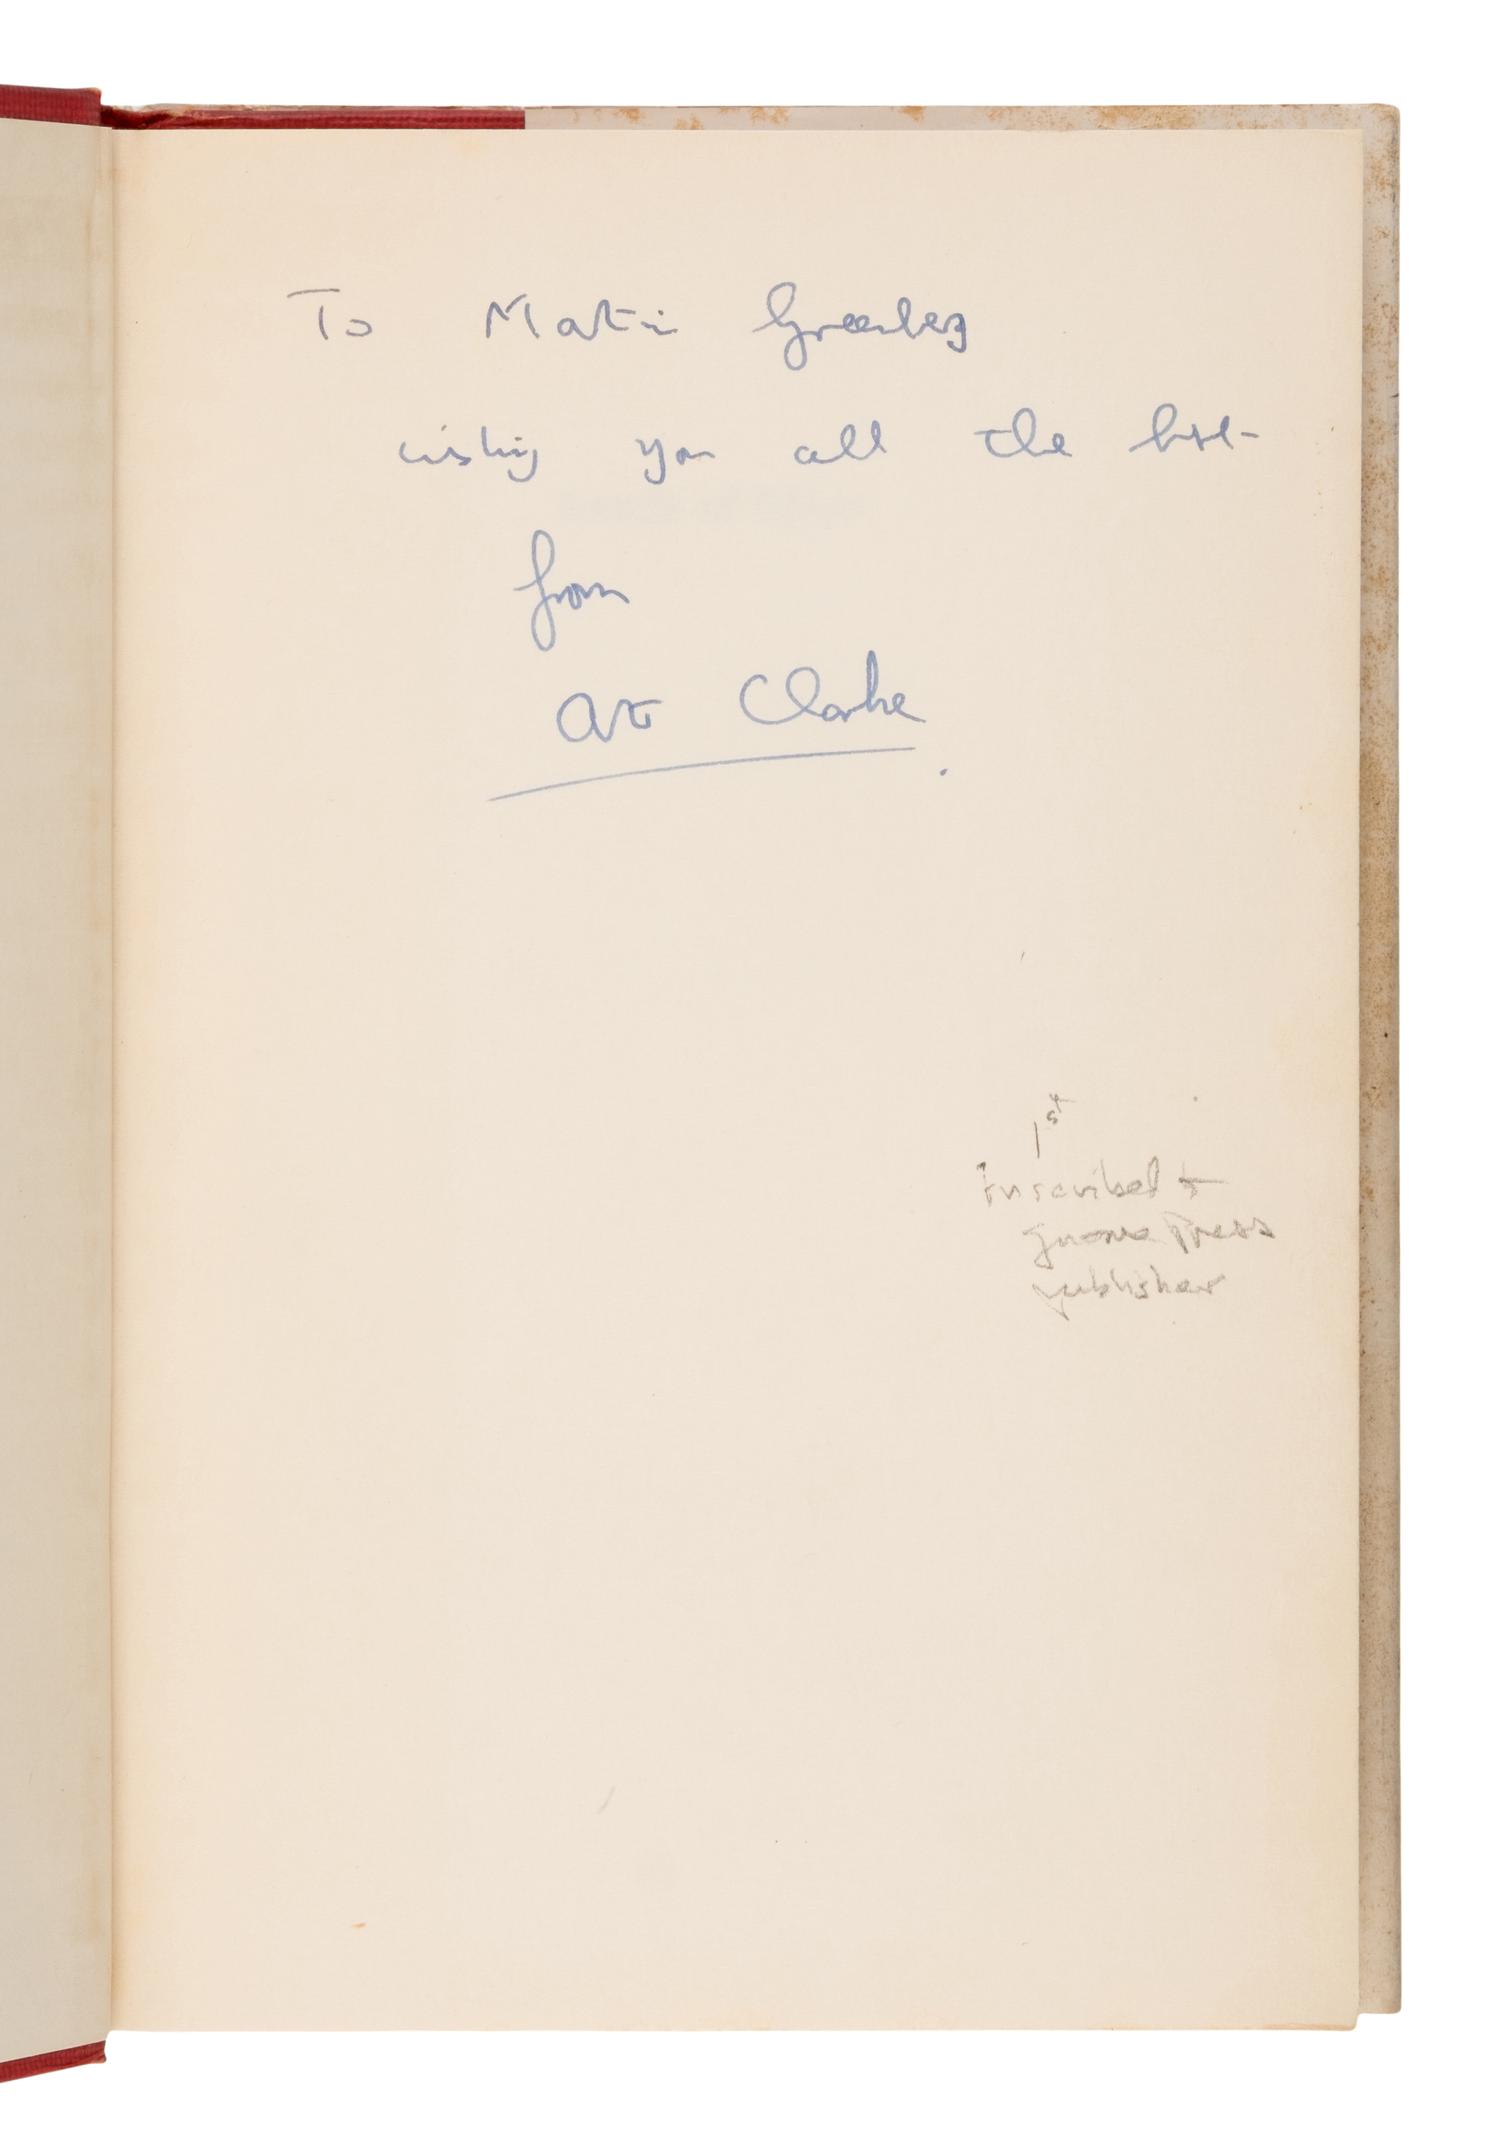 To Martin Greenberg
wishing you all the best
from
Art Clarke
1st
Inscribed to
Gnome Press
publisher